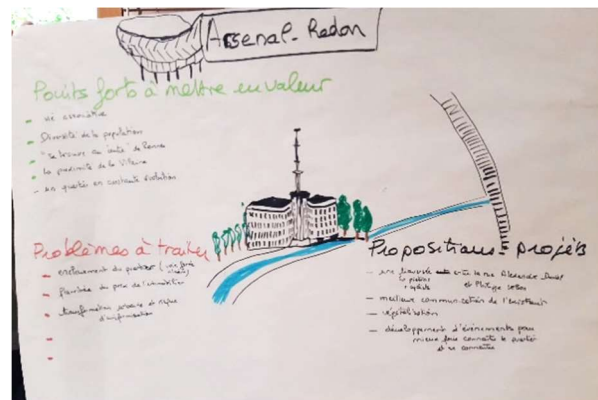 Arsenal-Redon
Points forts à mettre en valeur
- vie associative
- Diversité de la population
- "se trouve au centre" de Rennes
- la proximité de la Vilaine
- un quartier en constante évolution
Problèmes à traiter
- enclavement du quartier (voie ferrée
- flambée du prix de l'immobilier
- transformation urbaine et risque
Propositions - projets
- une liaison entre la rue Alexandre Duval
et Philippe
- meilleure communication de l'existant
- végétalisation
- développement d'évènements pour
mieux faire connaître le quartier
et se connaître